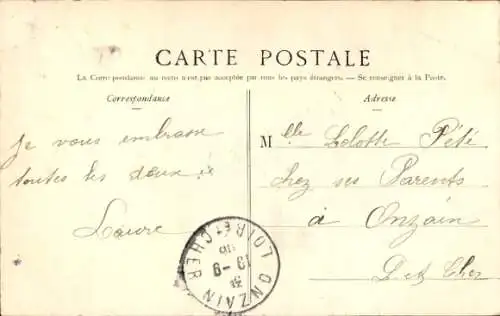 CARTE POSTALE
La Correspondance au recto n'est pas acceptée par tous les pays étrangers. — Se renseigner à la Poste.
Correspondance
Je vous embrasse
toutes les deux
Laure
Adresse
Mlle Lolotte Pété
chez ses Parents
à Onzain
L et Cher
ONZAIN
LOIR-ET-CHER